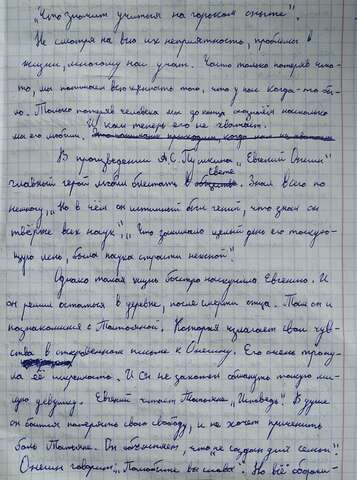 "Что значит учиться на горьком опыте".
Не смотря на всю их неприятность, проблемы в
жизни, многому нас учат. Часто только потеряв что-
то, мы понимаем всю ценность того, что у нас когда-то бы-
ло. Только потеряв человека мы до конца осознаём насколько
мы его любим. И как теперь его не хватает.
В произведении А.С. Пушкина "Евгений Онегин"
главный герой любил блистать в обществе. свете Знал всего по
немногу, "Но в чём он истинный был гений, что знал он
твёрже всех наук", "Что занимало целый день его тоскую-
щую лень, была наука страсти нежной".
Однако такая жизнь быстро наскучила Евгению. И
он решил остаться в деревне, после смерти отца. Там он и
познакомился с Татьяной. Которая излагает свои чув-
ства в откровенном письме к Онегину. Его очень трону-
ла её искренность. И он не захотел обмануть такую ми-
лую девушку. Евгений читает Татьяне "Исповедь". В душе
он боится потерять свою свободу, и не хочет причинить
боль Татьяне. Он объясняет, что "не создан для семьи".
Онегин говорит: "Полюбите вы снова". Но всё